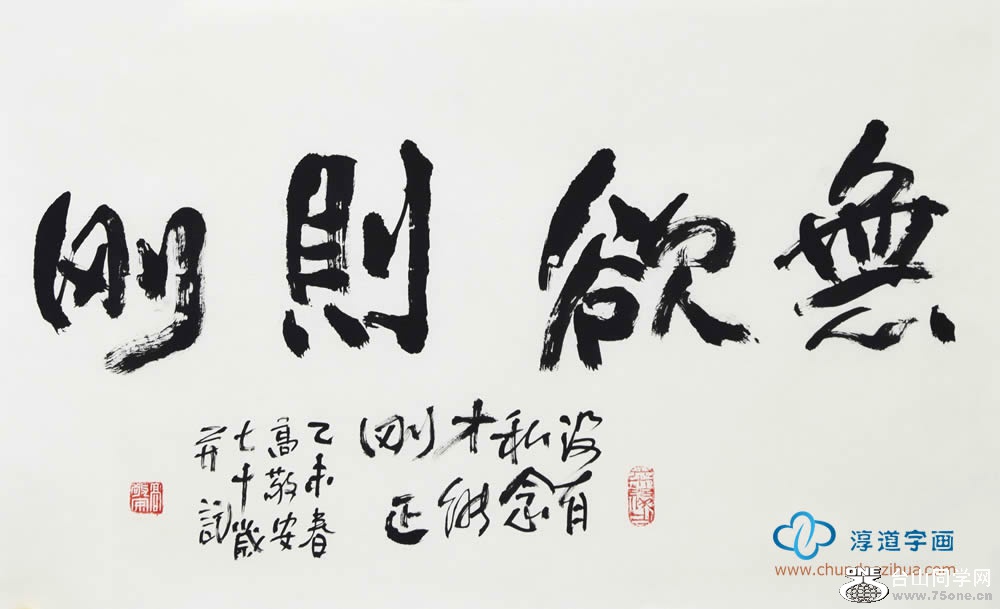 無欲則剛
没有
私念
才能
刚正
乙未春
高敬安
七十歲
并記
淳道字画
www.chundaozihua.com
ONE 台山同学网
www.75one.cn